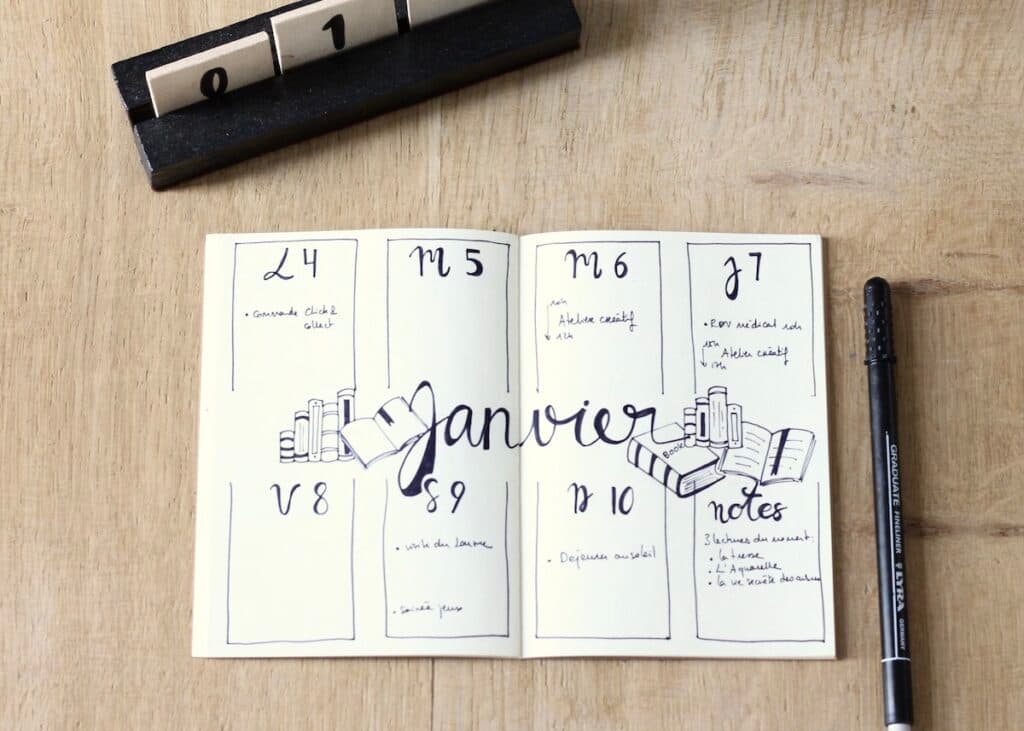 0
1
L 4
• Commande Click &
collect
M 5
M 6
10h
Atelier créatif
12h
J 7
• RDV médical 10h
15h
Atelier créatif
17h
Janvier
BOOK
V 8
S 9
• visite du Louvre
• Soirée jeux
D 10
• Déjeuner au soleil
notes
3 lectures du moment :
• La tresse
• L'Aquarelle
• La vie secrète des
GRADUATE FINELINER LYRA GERMANY